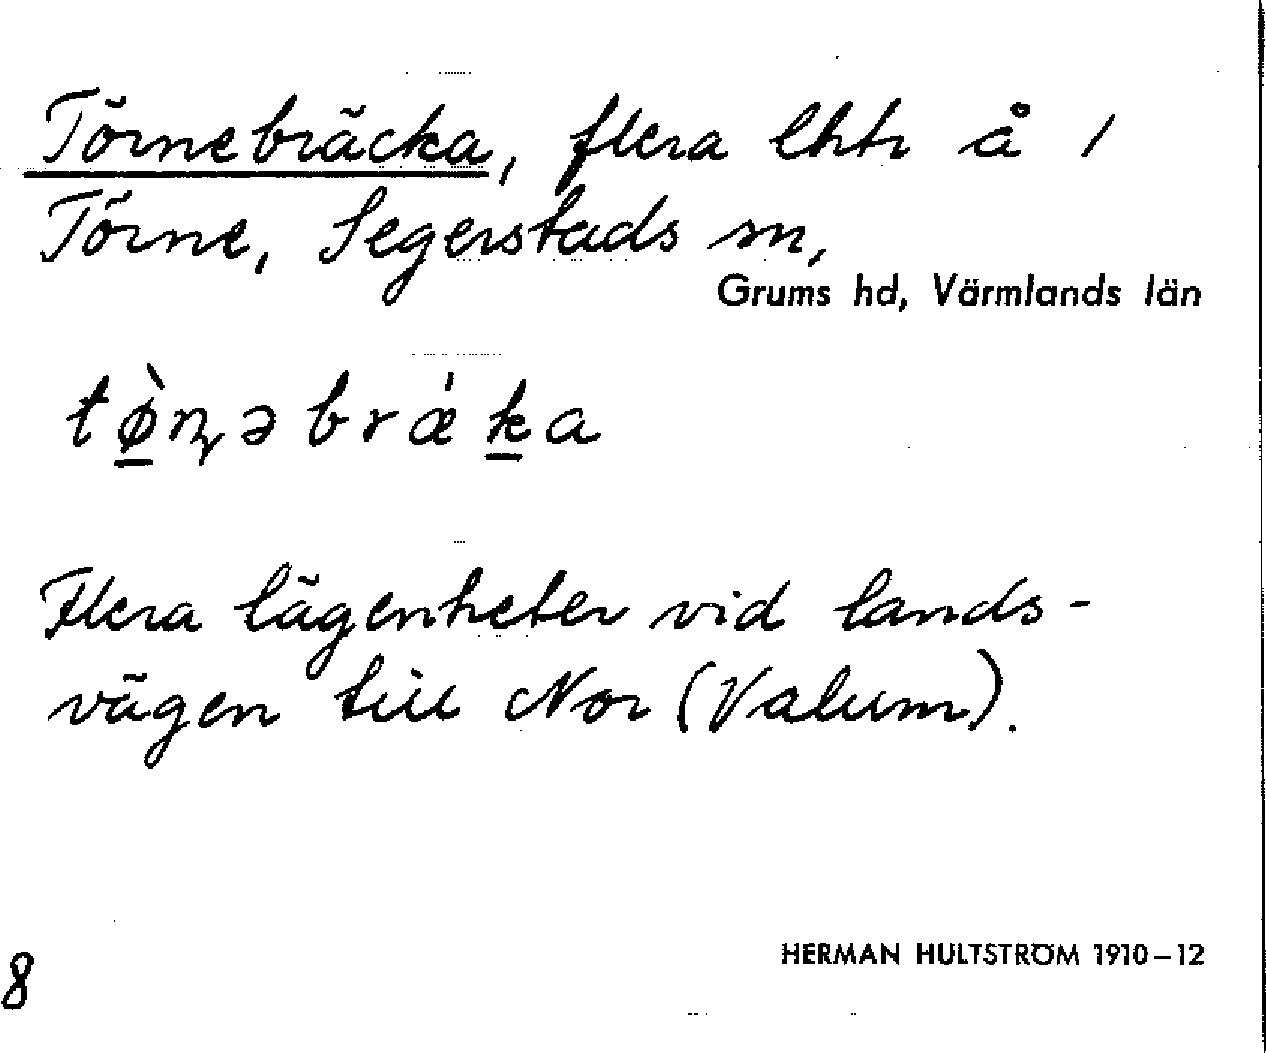 Törnebräcka, flera lhtr å 1
Törne, Segerstads sn,
Grums hd, Värmlands län
tø̀ɳəbrǽka
Flera lägenheter vid lands-
vägen till Nor (Valum).
HERMAN HULTSTRÖM 1910–12
8